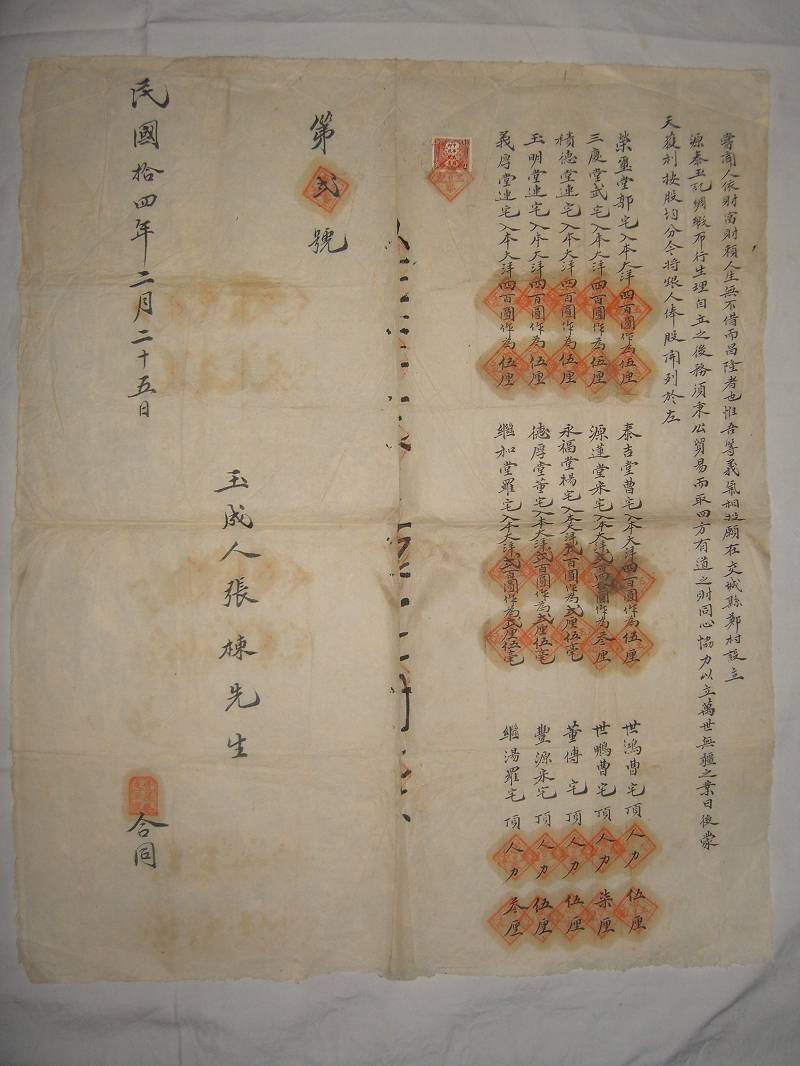 嘗聞人依財富財賴人生無不借而昌隆者也惟吾等義氣相投願在交城縣鄭村設立
源泰玉記綢緞布行生理自立之後務須秉公貿易而取四方有道之財同心協力以立萬世無疆之業日後蒙
天獲利按股均分今將銀人俸股開列於左
榮璽堂郭宅入本大洋四百圓作為伍厘
三慶堂武宅入本大洋四百圓作為伍厘
積德堂連宅入本大洋四百圓作為伍厘
玉明堂連宅入本大洋四百圓作為伍厘
義厚堂連宅入本大洋四百圓作為伍厘
泰吉堂曹宅入本大洋四百圓作為伍厘
源蓮堂宋宅入本大洋弍百四拾圓作為叁厘
永福堂楊宅入本大洋弍百圓作為弍厘伍毫
德厚堂董宅入本大洋弍百圓作為弍厘伍毫
繼和堂羅宅入本大洋弍百圓作為弍厘伍毫
世鴻曹宅頂人力伍厘
世鵬曹宅頂人力柒厘
董傳宅頂人力伍厘
豐源宋宅頂人力伍厘
繼湯羅宅頂人力叁厘
第弍號
玉成人張棟先生
民國拾四年二月二十五日
合同